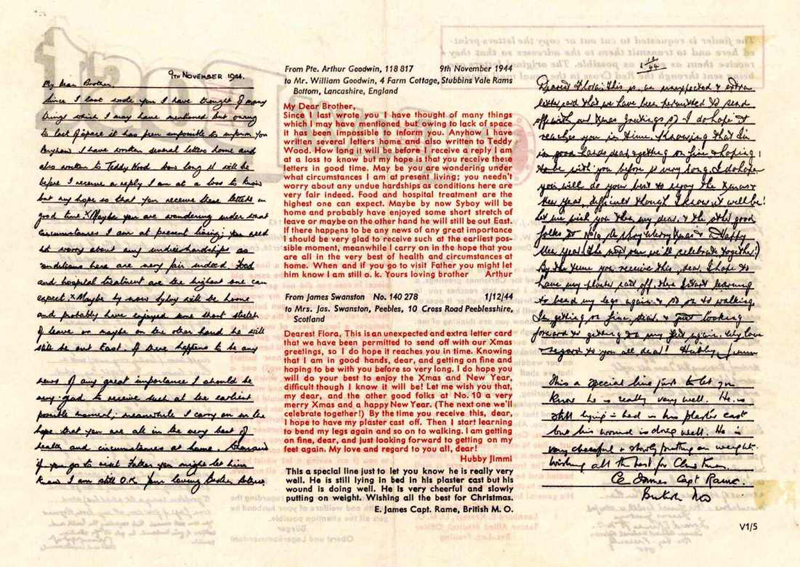 9TH NOVEMBER 1944.
My Dear Brother,
Since I last wrote you I have thought of many
things which I may have mentioned but owing
to lack of space it has been impossible to inform you
Anyhow I have written several letters home and
also written to Teddy Wood how long it will be
before I receive a reply I am at a loss to know
but my hope is that you receive these letters in
good time Maybe you are wondering under what
circumstances I am at present living; you need
not worry about any undue hardships as
conditions here are very fair indeed. Food
and hospital treatment are the highest one can
expect. Maybe by now Syboy will be home
and probably have enjoyed some short stretch
of leave or maybe on the other hand he will
still be out East. If there happens to be any
news of any great importance I should be
very glad to receive such at the earliest
possible moment; meanwhile I carry on in the
hope that you are all in the very best of
health and circumstances at home.
if you go to visit Father you might let him
know I am still O.K. Your loving Brother
From Pte. Arthur Goodwin, 118 817 9th November 1944
to Mr. William Goodwin, 4 Farm Cottage, Stubbins Vale Rams
Bottom, Lancashire, England
My Dear Brother,
Since I last wrote you I have thought of many things
which I may have mentioned but owing to lack of space
it has been impossible to inform you. Anyhow I have
written several letters home and also written to Teddy
Wood. How long it will be before I receive a reply I am
at a loss to know but my hope is that you receive these
letters in good time. May be you are wondering under
what circumstances I am at present living; you needn't
worry about any undue hardships as conditions here are
very fair indeed. Food and hospital treatment are the
highest one can expect. Maybe by now Syboy will be
home and probably have enjoyed some short stretch of
leave or maybe on the other hand he will still be out East.
If there happens to be any news of any great importance
I should be very glad to receive such at the earliest pos-
sible moment, meanwhile I carry on in the hope that you
are all in the very best of health and circumstances at
home. When and if you go to visit Father you might let
him know I am still a. k. Yours loving brother Arthur
From James Swanston No. 140 278 1/12/44
to Mrs. Jas. Swanston, Peebles, 10 Cross Road Peeblesshire,
Scotland
Dearest Flora, This is an unexpected and extra letter card
that we have been permitted to send off with our Xmas
greetings, so I do hope it reaches you in time. Knowing
that I am in good hands, dear, and getting on fine and
hoping to be with you before so very long. I do hope you
will do your best to enjoy the Xmas and New Year,
difficult though I know it will be! Let me wish you that,
my dear, and the other good folks at No. 10 a very
merry Xmas and a happy New Year. (The next one we'll
celebrate together!) By the time you receive this, dear,
I hope to have my plaster cast off. Then I start learning
to bend my legs again and so on to walking. I am getting
on fine, dear, and just looking forward to getting on my
feet again. My love and regard to you all, dear!
Hubby Jimmi
This a special line just to let you know he is really very
well. He is still lying in bed in his plaster cast but his
wound is doing well. He is very cheerful and slowly
putting on weight. Wishing all the best for Christmas.
E. James Capt. Rame, British M. O.
Dearest Flora: This is an unexpected & extra
letter card that we have been permitted to send
off with our Xmas greetings, so I do hope it
reaches you in time. Knowing that I'm
in good hands dear & getting on fine & hoping
to be with you before so very long. I do hope
you will do your best to enjoy the Xmas &
New Year, difficult though I know it will be!
Let me wish you that my dear, & the other good
folks at No 10, a very Merry Xmas & Happy
New Year! (The next one we'll celebrate together!)
By the time you receive this, dear, I hope to
have my plaster cast off, then I start learning
to bend my legs again & so on to walking.
I'm getting on fine, dear & just looking
forward to getting on my feet again. My love
& regard to you all dear! Hubby
This a special line just to let you
know he is really very well. He is
still lying in bed in his plaster cast
but his wound is doing well. He is
very cheerful & slowly putting on weight.
Wishing all the best for Christmas.
E. James Capt. Rame.
British MO
V1/5